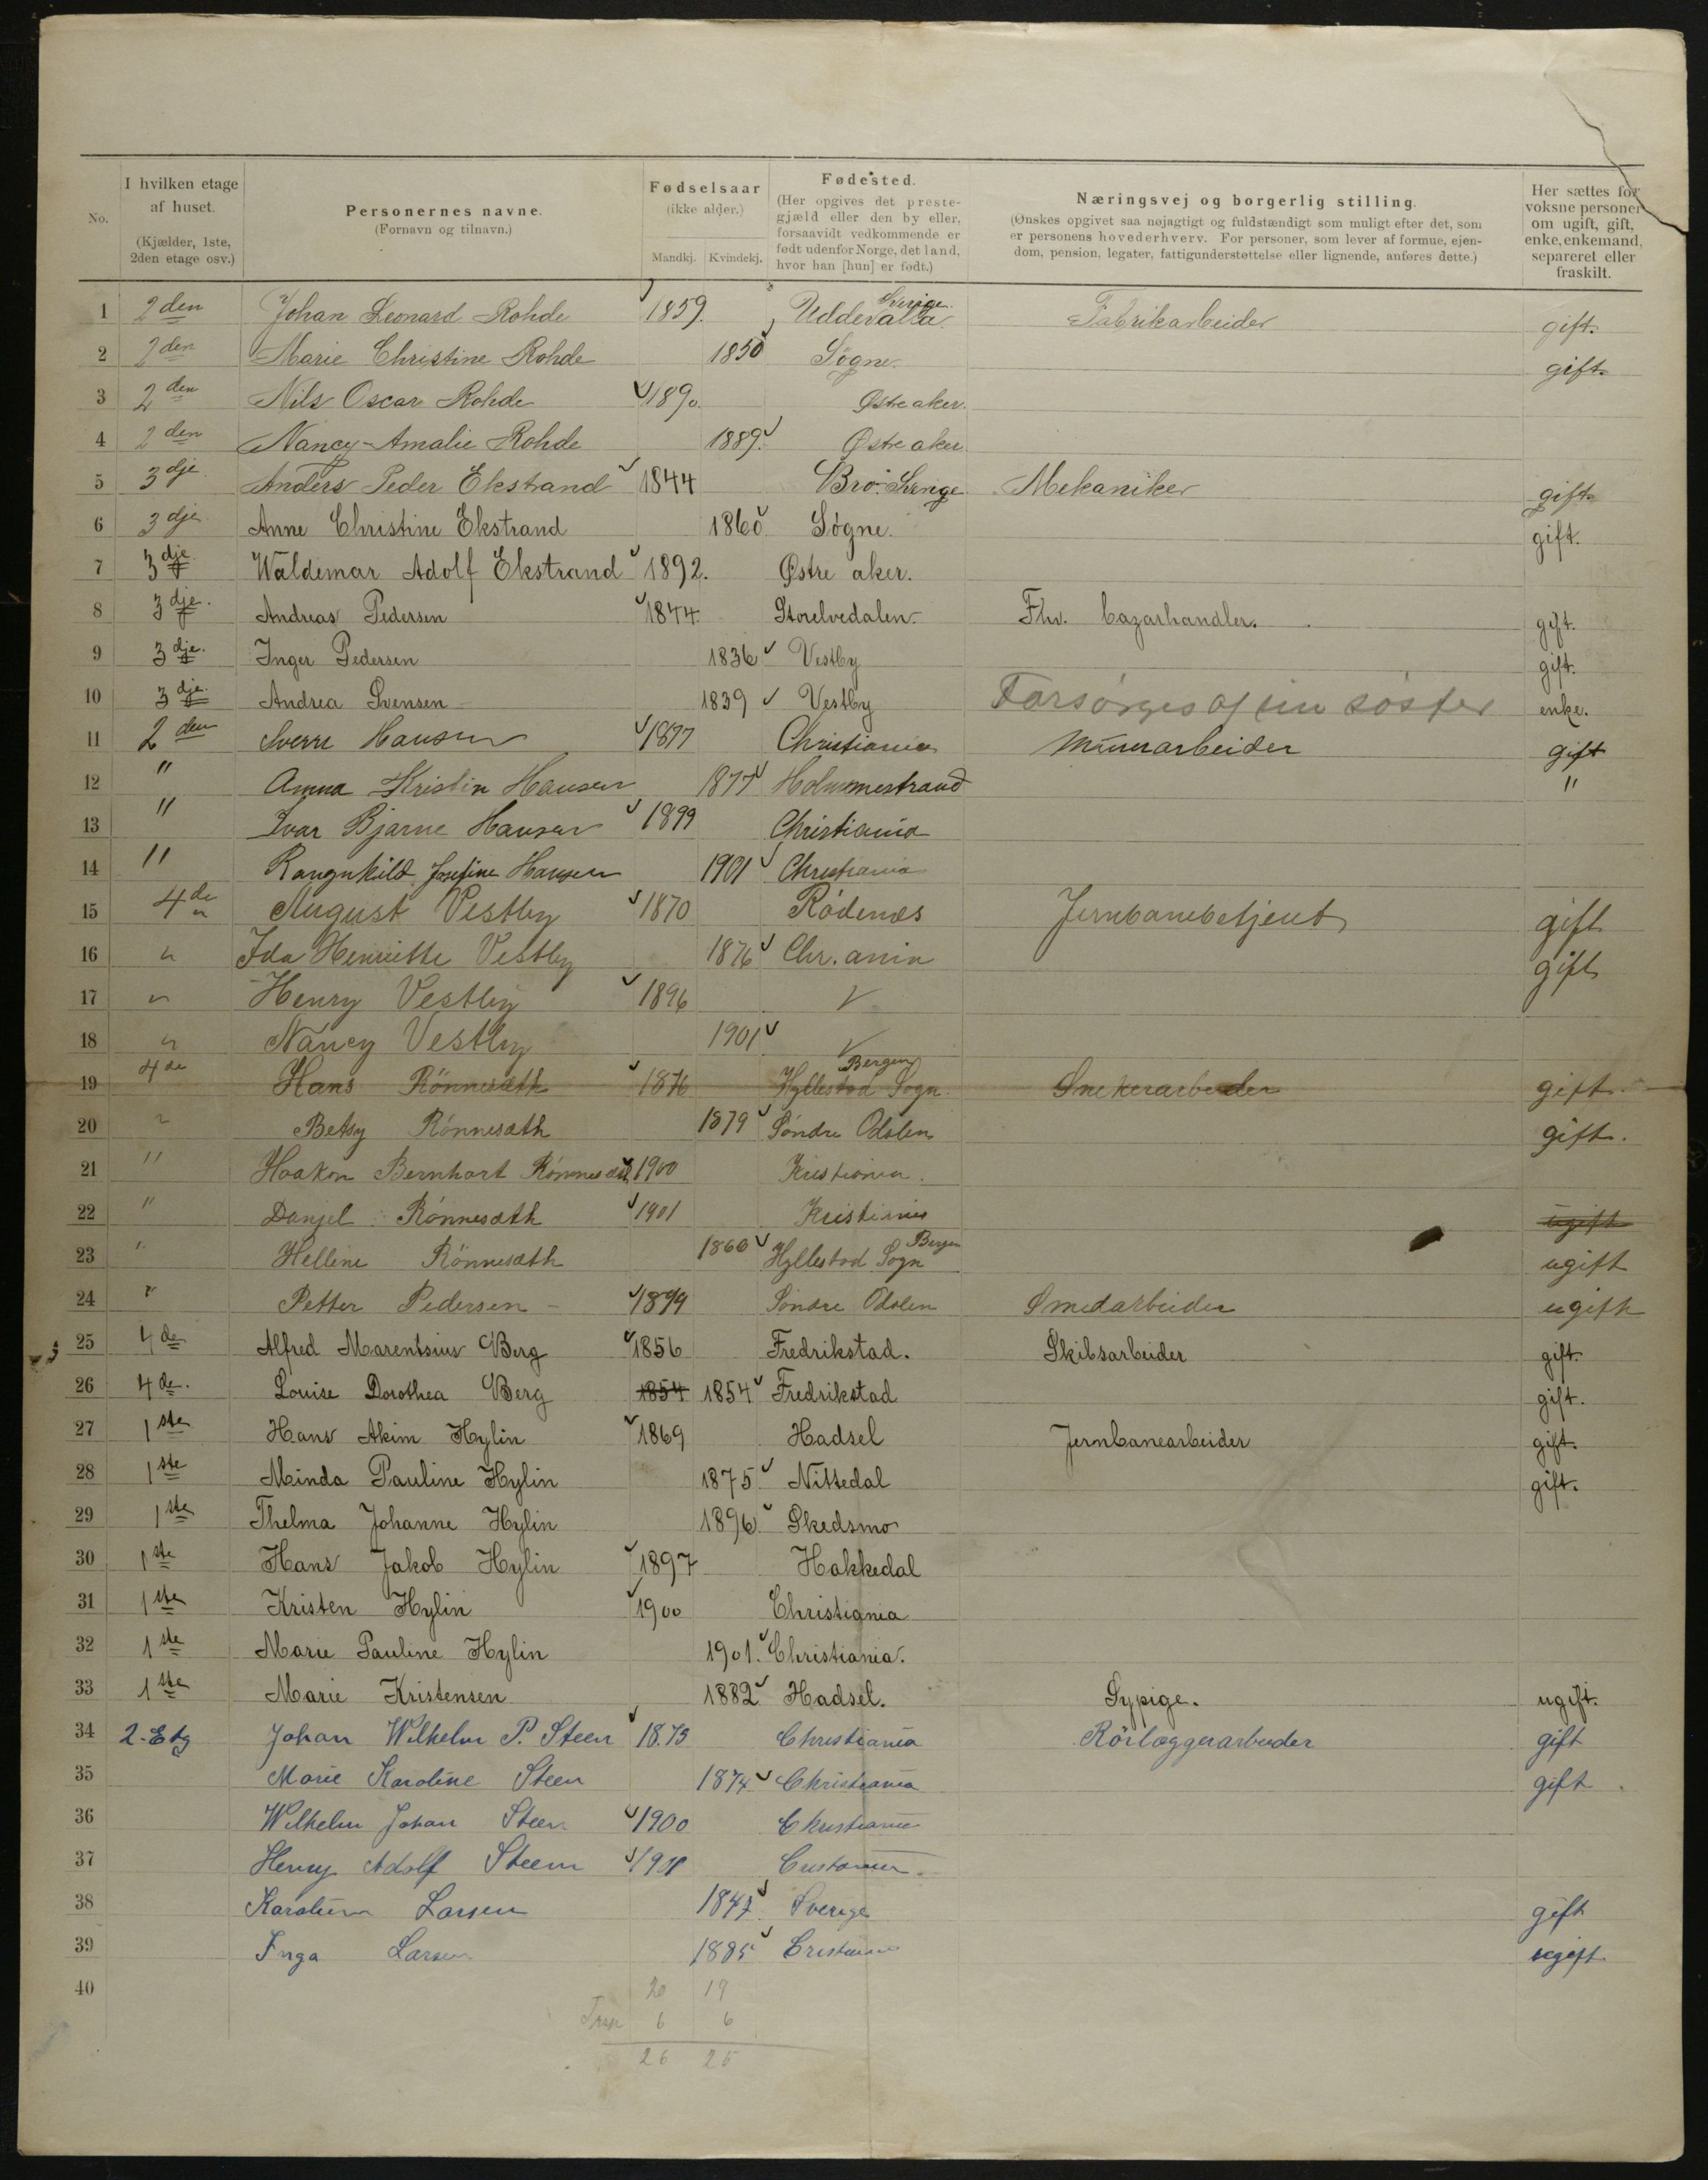 No. I hvilken etage af huset. (Kjælder, 1ste, 2den etage osv.) Personernes navne. (Fornavn og tilnavn.) Fødselsaar (ikke alder.) Mandkj. Kvindekj. Fødested. (Her opgives det prestegjæld eller den by eller, forsaavidt vedkommende er født udenfor Norge, det land, hvor han [hun] er født.) Næringsvej og borgerlig stilling. (Ønskes opgivet saa nøjagtigt og fuldstændigt som muligt efter det, som er personens hovederhverv. For personer, som lever af formue, ejendom, pension, legater, fattigunderstøttelse eller lignende, anføres dette.) Her sættes for voksne personer om ugift, gift, enke, enkemand, separeret eller fraskilt.
1 2den Johan Leonard Rohde 1859. Uddevalla Sverige. Fabrikarbeider gift.
2 2den Marie Christine Rohde 1850 Søgne. gift.
3 2den Nils Oscar Rohde 1890. Østre aker.
4 2den Nancy-Amalie Rohde 1889. Østre aker.
5 3dje Anders Peder Ekstrand 1844 Bro. Sverige Mekaniker gift
6 3dje Anne Christine Ekstrand 1860 Søgne. gift.
7 3dje Waldemar Adolf Ekstrand 1892. Østre aker.
8 3dje. Andreas Pedersen 1844. Storelvedalen. Fhv. bazarhandler. gift.
9 3dje. Inger Pedersen 1836 Vestby gift.
10 3dje. Andrea Svensen 1839 Vestby Forsørges af sin søster enke.
11 2den Sverre Hansen 1877 Christiania Murerarbeider gift
12 " Anna Kristin Hansen 1877 Holmmestrand "
13 " Ivar Bjarne Hansen 1899 Christiania
14 " Rangnhild Josefine Hansen 1901 Christiania
15 4de August Vestby 1870 Rødenæs Jernbanebetjent gift
16 " Ida Henriette Vestby 1876 Chr.ania gift
17 " Henry Vestby 1896 "
18 " Nancy Vestby 1901 "
19 4de Hans Rönnesæth 1876 Hyllestad Sogn Bergen Snekerarbeider gift.
20 " Betsy Rönnesæth 1879 Søndre Odalen gift.
21 " Haakon Bernhart Rönnesæth 1900 Kristiania.
22 " Danjel Rönnesæth 1901 Kristiania ugift
23 " Helline Rönnesæth 1860 Hyllestad Sogn Bergen ugift
24 " Petter Pedersen 1879 Søndre Odalen Smedarbeider ugift
25 4de Alfred Marentsius Berg 1856 Fredrikstad. Skibsarbeider gift.
26 4de. Louise Dorothea Berg 1854 1854 Fredrikstad gift.
27 1ste Hans Akim Hylin 1869 Hadsel Jernbanearbeider gift.
28 1ste Minda Pauline Hylin 1875 Nittedal gift.
29 1ste Thelma Johanne Hylin 1896 Skedsmo
30 1ste Hans Jakob Hylin 1897 Hakkedal
31 1ste Kristen Hylin 1900 Christiania
32 1ste Marie Pauline Hylin 1901. Christiania.
33 1ste Marie Kristensen 1882 Hadsel. Sypige. ugift.
34 2-Etg Johan Wilhelm P. Steen 1875 Christiania Rörlæggerarbeider gift
35 Marie Karoline Steen 1874 Christiania gift
36 Wilhelm Johan Steen 1900 Christiania
37 Henry Adolf Steen 1901
38 Larsen 1847 Sverige gift
39 Inga Larsen 1885 ugift
40 20 19
6 6
26 25